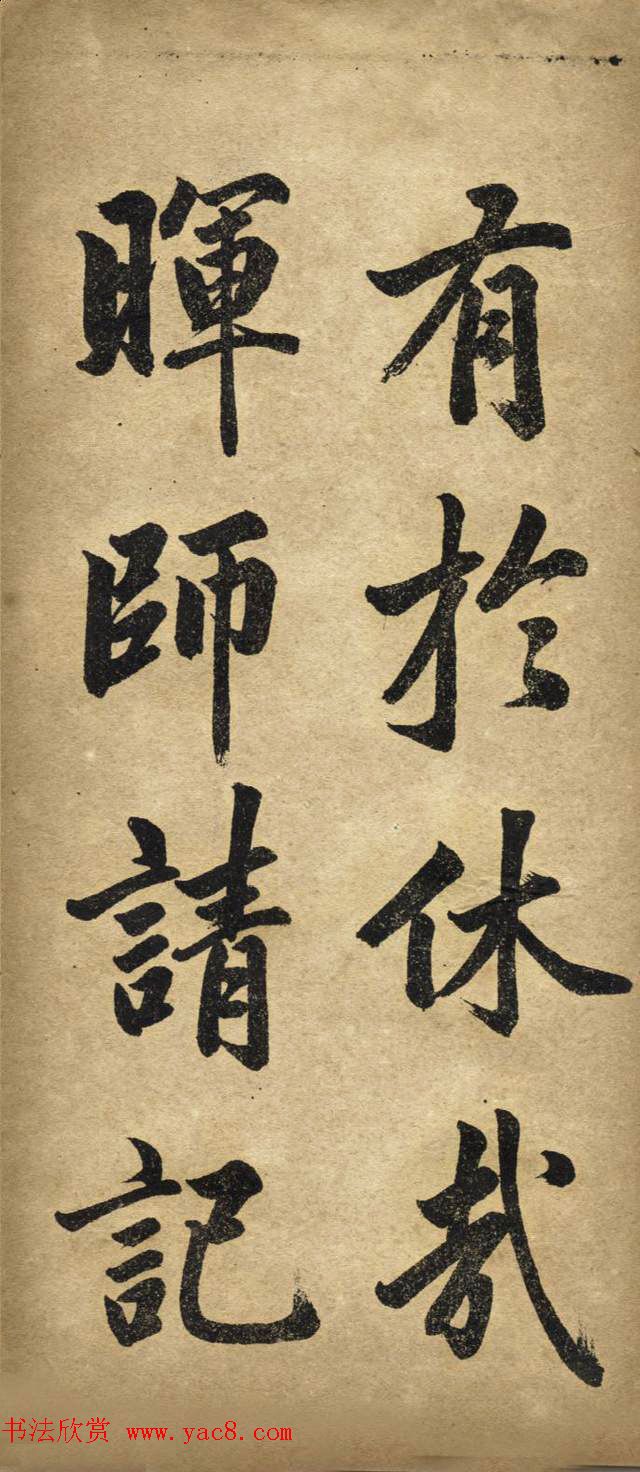 有於休哉
暉師請記
书法欣赏 www.yac8.com